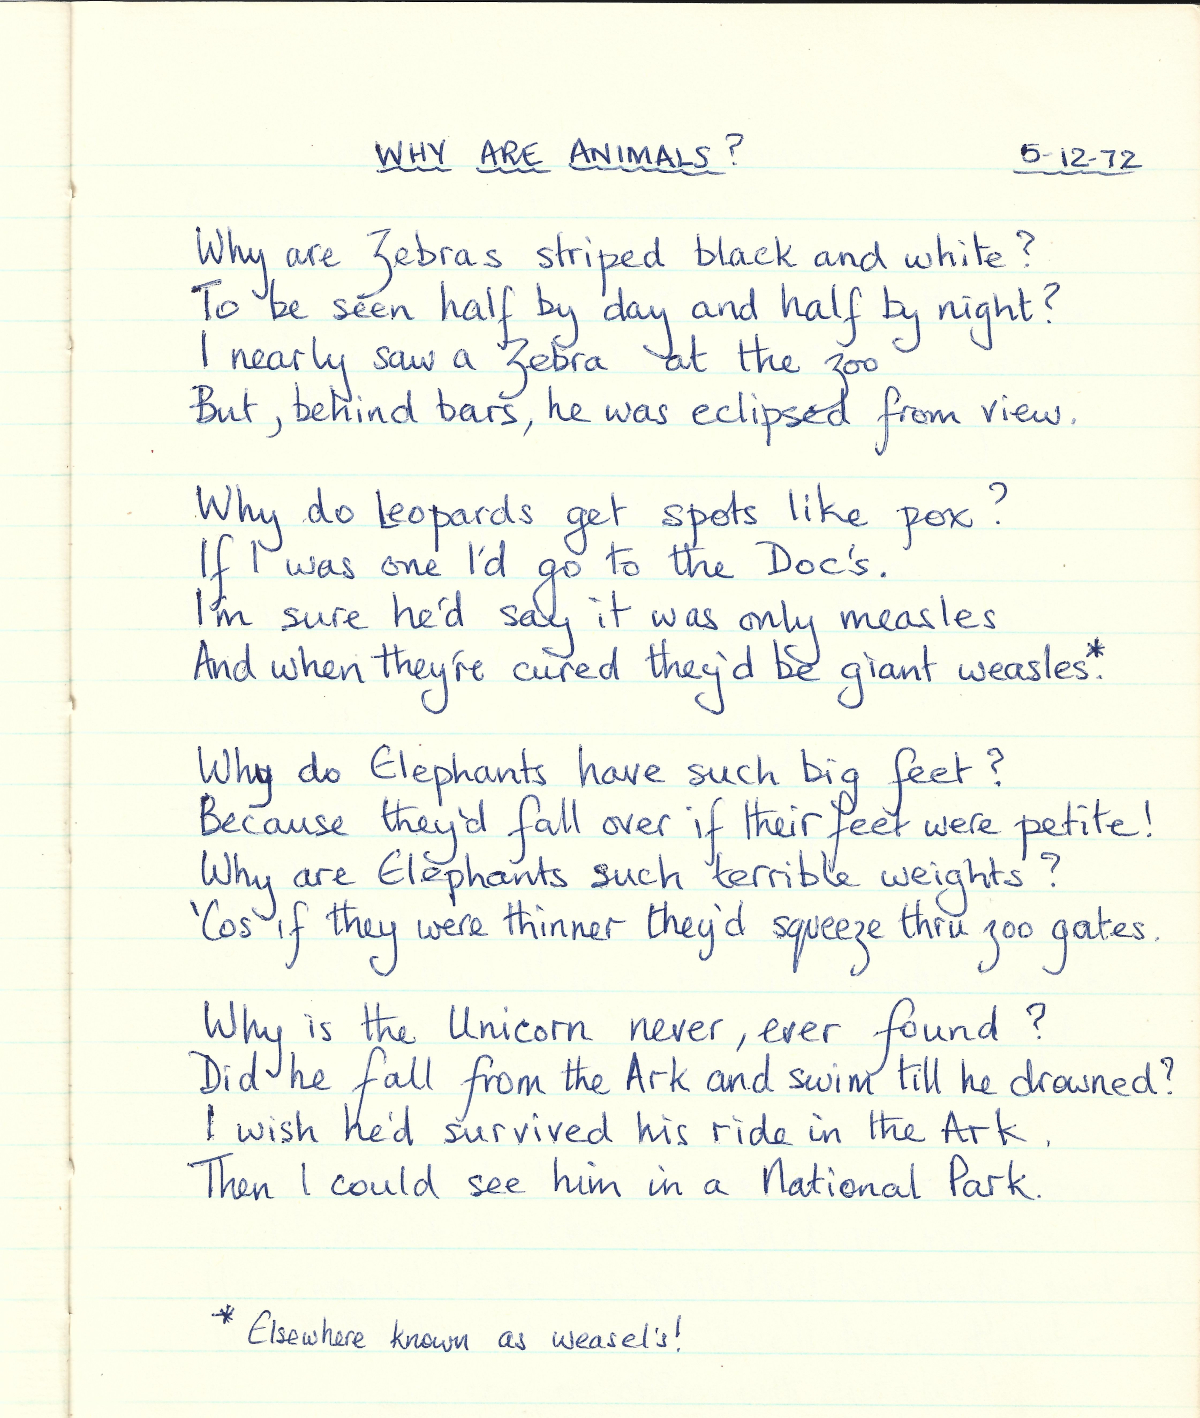 WHY ARE ANIMALS? 5-12-72
Why are Zebras striped black and white?
To be seen half by day and half by night?
I nearly saw a Zebra at the zoo
But, behind bars, he was eclipsed from view.
Why do Leopards get spots like pox?
If I was one I'd go to the Doc's.
I'm sure he'd say it was only measles
And when they're cured they'd be giant weasles*.
Why do Elephants have such big feet?
Because they'd fall over if their feet were petite!
Why are Elephants such terrible weights?
'Cos if they were thinner they'd squeeze thru zoo gates.
Why is the Unicorn never, ever found?
Did he fall from the Ark and swim till he drowned?
I wish he'd survived his ride in the Ark.
Then I could see him in a National Park.
* Elsewhere known as weasel's!